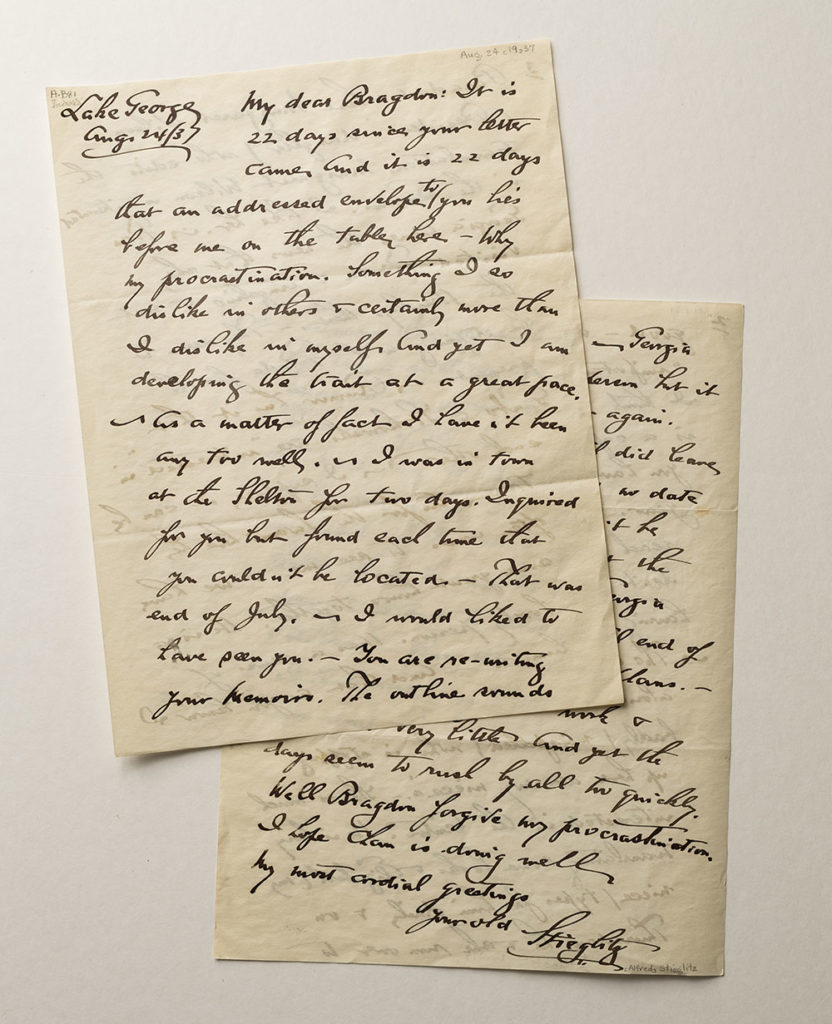 Aug. 24, 1937
A.B81
Lake George
Aug. 24/37
My dear Bragdon: It is
22 days since your letter
came, And it is 22 days
that an addressed envelope to (you lies
before me on the table, here — Why
my procrastination. Something I so
dislike in others & certainly more than
I dislike in myself, And yet I am
developing the trait at a great pace.
— As a matter of fact I have it been
any too well. — I was in town
at the Shelton for two days. Inquired
for you but found each time that
you couldn't be located. — That was
end of July. — I would liked to
have seen you. — You are re-writing
your Memoirs. The outline sounds
— Georgia
but it
— again.
did leave
no date
it be
the
Georgia
end of
plans. —
work &
very little And yet the
days seem to rush by all too quickly.
Well Bragdon forgive my procrastination.
I hope Cham is doing well,
My most cordial greetings
Your old
Stieglitz
Alfred Stieglitz